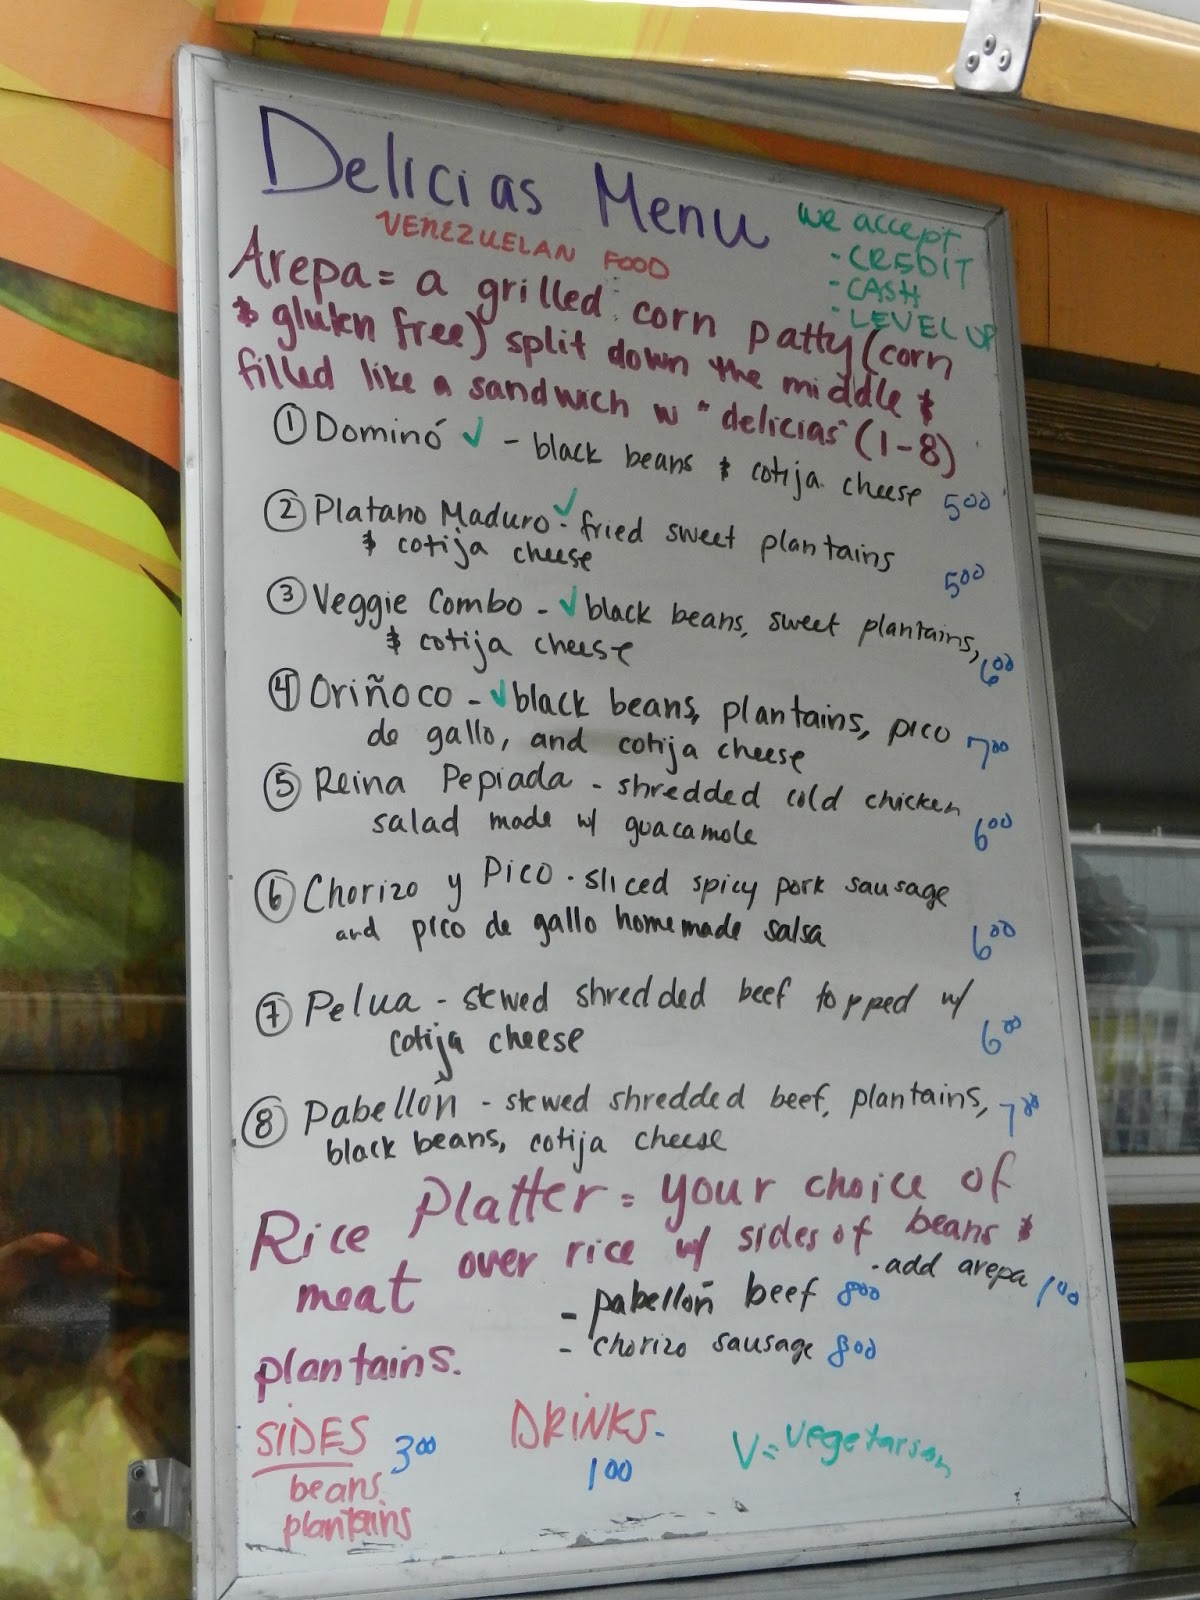 Delicias Menu
VENEZUELAN FOOD
we accept
- CREDIT
- CASH
- LEVEL UP
Arepa = a grilled corn patty (corn
& gluten free) split down the middle &
filled like a sandwich w "delicias" (1-8)
① Dominó ✓ - black beans & cotija cheese 500
② Platano Maduro ✓- fried sweet plantains
& cotija cheese 500
③ Veggie Combo - ✓ black beans, sweet plantains,
& cotija cheese 600
④ Oriñoco - ✓ black beans, plantains, pico
de gallo, and cotija cheese 700
⑤ Reina Pepiada - shredded cold chicken
salad made w/ guacamole 600
⑥ Chorizo y Pico - sliced spicy pork sausage
and pico de gallo homemade salsa 600
⑦ Pelua - stewed shredded beef topped w/
cotija cheese 600
⑧ Pabellón - stewed shredded beef, plantains, 700
black beans, cotija cheese
Rice Platter = your choice of
meat over rice w/ sides of beans &
plantains.
- add arepa 100
- pabellón beef 800
- chorizo sausage 800
SIDES 300
beans
plantains
DRINKS-
100
V = vegetarian